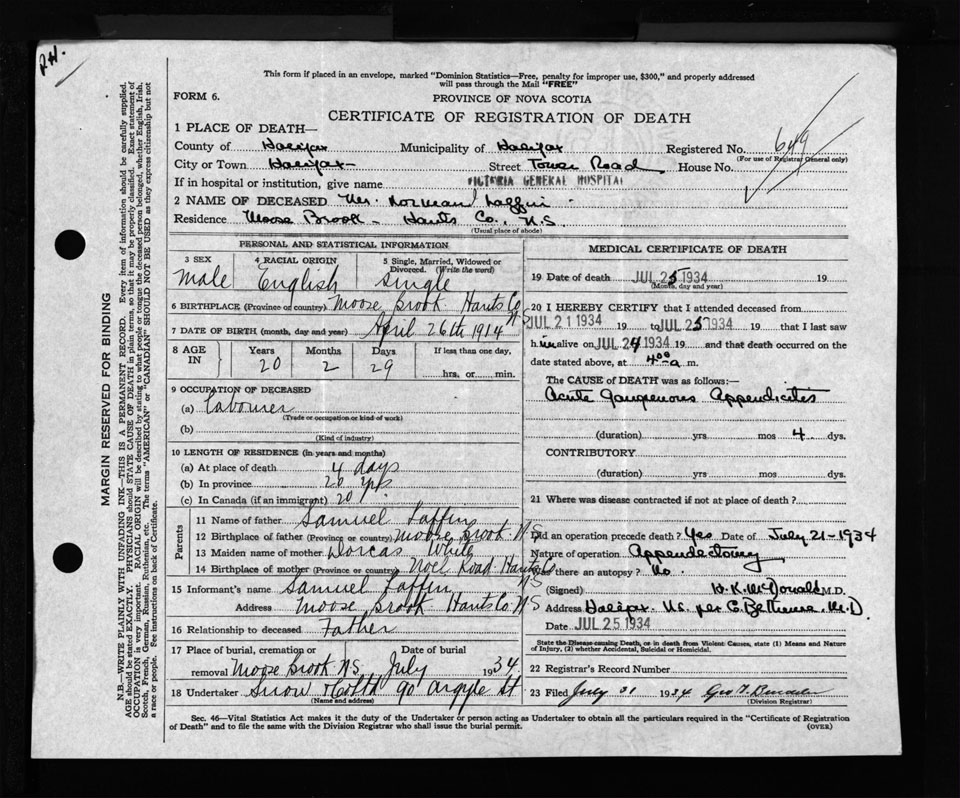 R.H.
This form if placed in an envelope, marked "Dominion Statistics—Free, penalty for improper use, $300," and properly addressed
will pass through the Mail "FREE"
FORM 6.
PROVINCE OF NOVA SCOTIA
CERTIFICATE OF REGISTRATION OF DEATH
1 PLACE OF DEATH—
County of Halifax Municipality of Halifax Registered No. 649
(For use of Registrar General only)
City or Town Halifax Street Tower Road House No.
If in hospital or institution, give name VICTORIA GENERAL HOSPITAL
2 NAME OF DECEASED Mr. Norman Laffin
Residence Moose Brook - Hants Co., N.S.
(Usual place of abode)
PERSONAL AND STATISTICAL INFORMATION
3 SEX 4 RACIAL ORIGIN 5 Single, Married, Widowed or Divorced. (Write the word)
Male English Single
6 BIRTHPLACE (Province or country) Moose Brook Hants Co NS
7 DATE OF BIRTH (month, day and year) April 26th 1914
8 AGE IN Years Months Days If less than one day,
20 2 29 hrs. or min.
9 OCCUPATION OF DECEASED
(a) Labourer
(Trade or occupation or kind of work)
(b)
(Kind of industry)
10 LENGTH OF RESIDENCE (in years and months)
(a) At place of death 4 days
(b) In province 20 yrs
(c) In Canada (if an immigrant) 20
Parents
11 Name of father Samuel Laffin
12 Birthplace of father (Province or country) Moose Brook N.S
13 Maiden name of mother Dorcas White
14 Birthplace of mother (Province or country) Noel Road Hants Co NS
15 Informant's name Samuel Laffin
Address Moose Brook Hants Co. NS
16 Relationship to deceased Father
17 Place of burial, cremation or removal Moose Brook NS Date of burial July 1934.
18 Undertaker Snow 90 Argyle St
(Name and address)
MEDICAL CERTIFICATE OF DEATH
19 Date of death JUL 25 1934 19
(Month, day and year)
20 I HEREBY CERTIFY that I attended deceased from
JUL 21 1934 19 to JUL 25 1934 19 that I last saw
him alive on JUL 24 1934 19 and that death occurred on the
date stated above, at 4 00 a m.
The CAUSE OF DEATH was as follows:—
Acute Gangrenous Appendicites
(duration) yrs mos 4 dys.
CONTRIBUTORY
(duration) yrs mos dys.
21 Where was disease contracted if not at place of death?
Did an operation precede death? Yes Date of July 21-1934
Nature of operation Appendectomy
Was there an autopsy? No.
(Signed) H.K. McDonald M.D.
Address Halifax. N.S. per C. M.D
Date JUL 25 1934
State the Disease causing Death, or in death from Violent Causes, state (1) Means and Nature
of Injury, (2) whether Accidental, Suicidal or Homicidal.
22 Registrar's Record Number
23 Filed July 31 1934 Geo
(Division Registrar)
Sec. 46—Vital Statistics Act makes it the duty of the Undertaker or person acting as Undertaker to obtain all the particulars required in the "Certificate of Registration
of Death" and to file the same with the Division Registrar who shall issue the burial permit. (OVER)
MARGIN RESERVED FOR BINDING
N.B.—WRITE PLAINLY WITH UNFADING INK—THIS IS A PERMANENT RECORD. Every item of information should be carefully supplied.
AGE should be stated EXACTLY. PHYSICIANS should STATE CAUSE OF DEATH in plain terms, so that it may be properly classified. Exact statement of
OCCUPATION is very important. RACIAL ORIGIN will be described by stating to what people or tongue the deceased person belonged, whether English, Irish,
Scotch, French, German, Russian, Ruthenian, etc. The terms "AMERICAN" or "CANADIAN" SHOULD NOT BE USED as they express citizenship but not
a race or people. See instructions on back of Certificate.